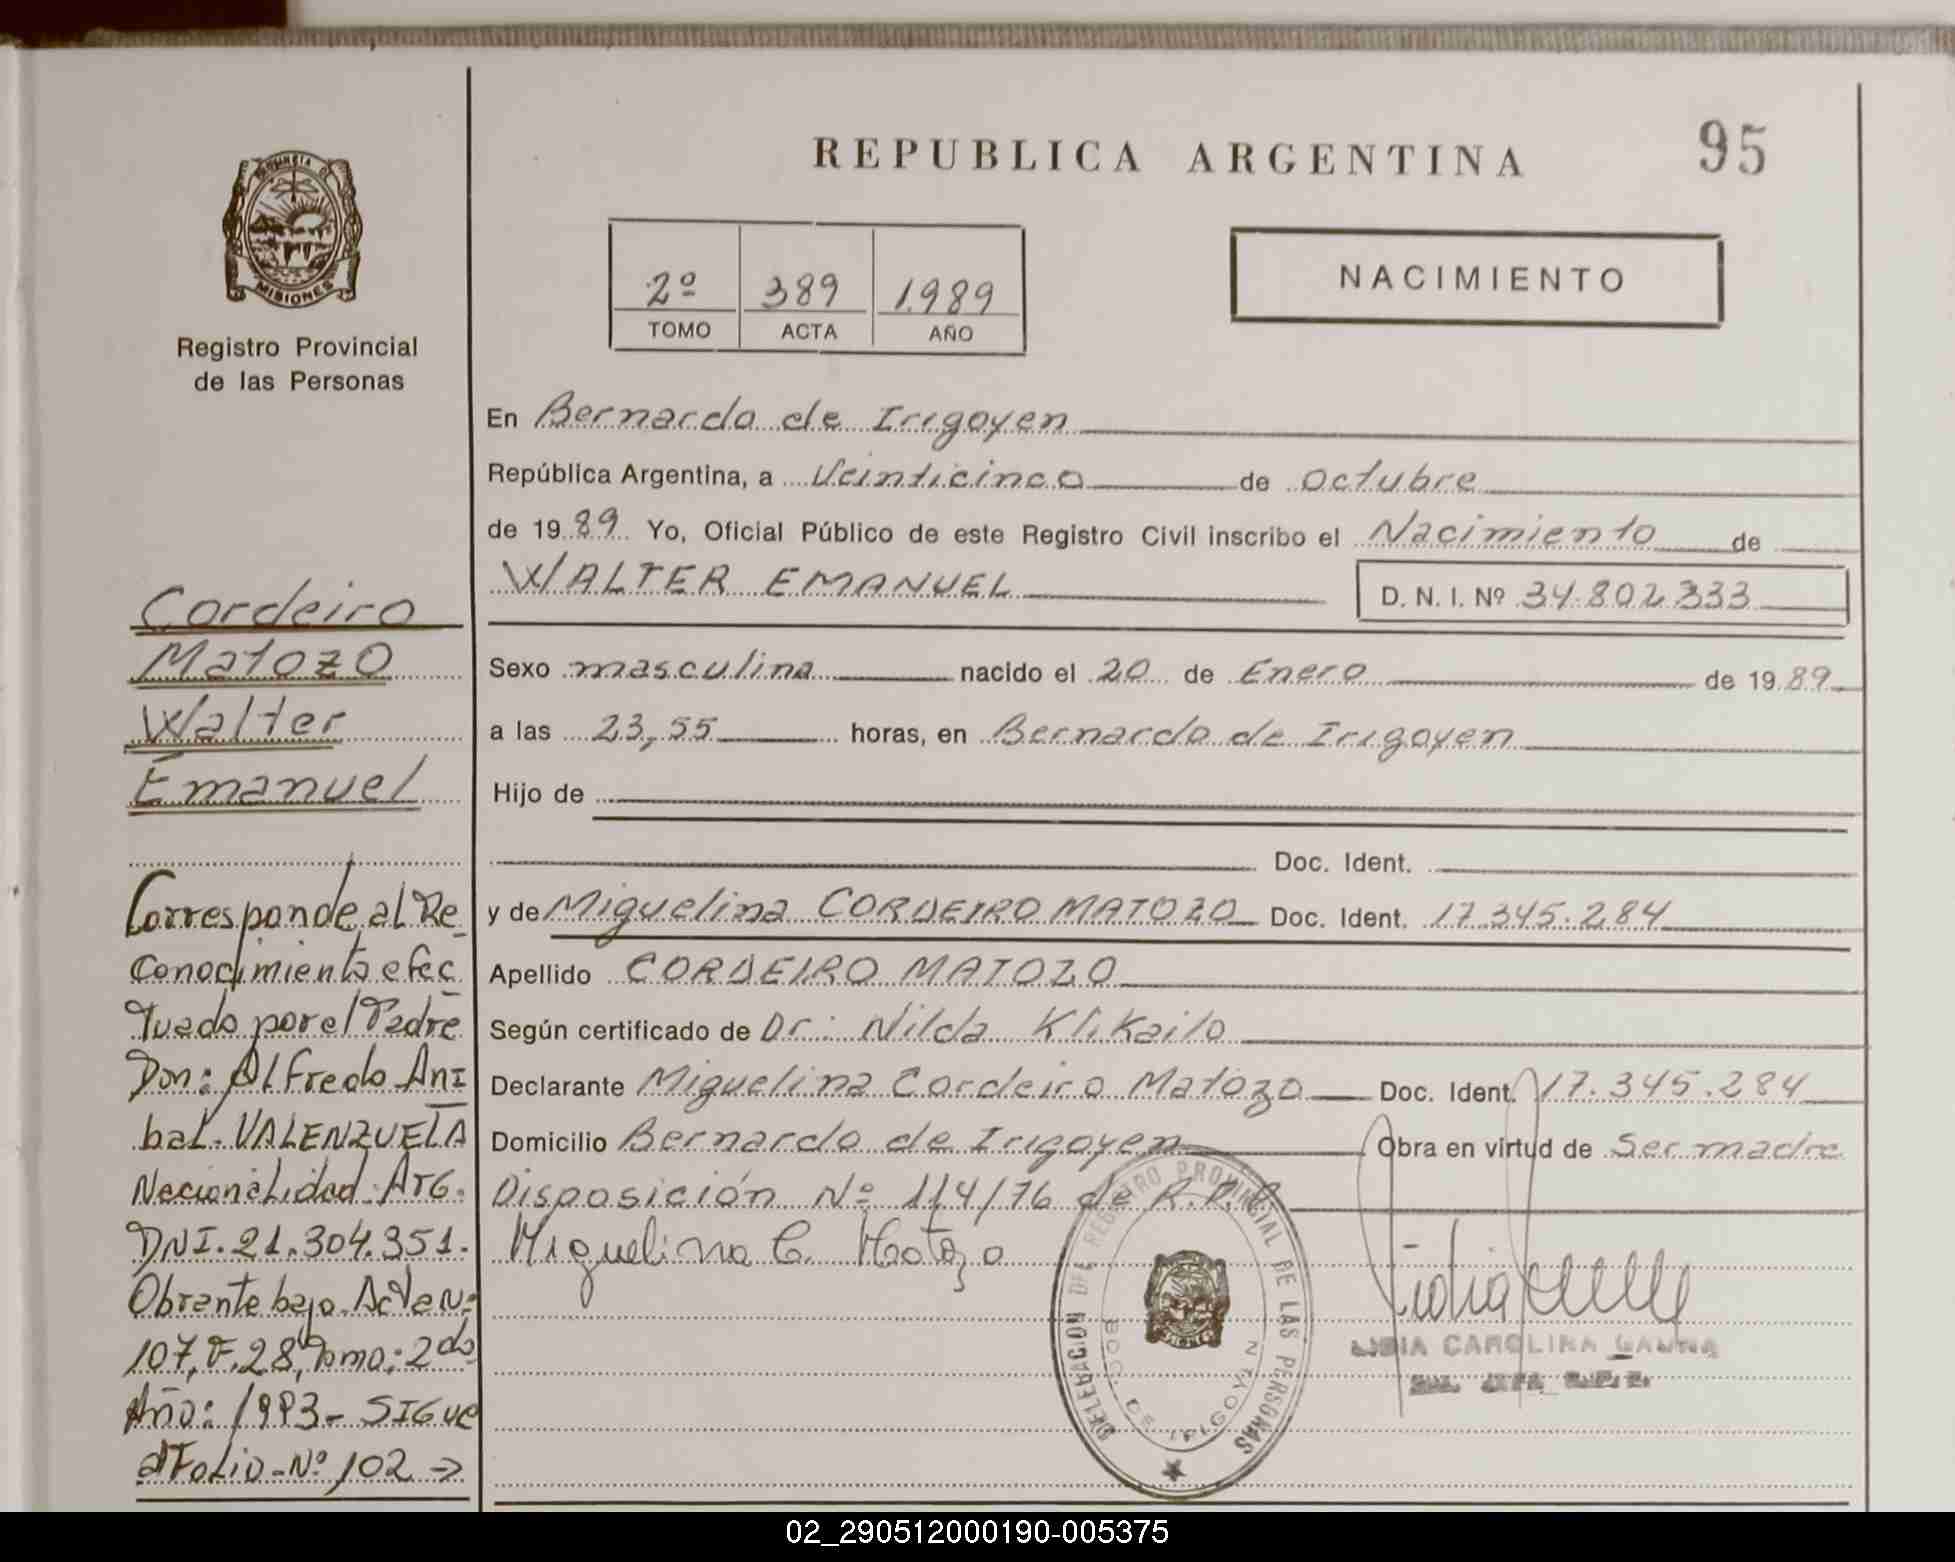 PROVINCIA DE
MISIONES
Registro Provincial
de las Personas
REPUBLICA ARGENTINA
95
2º 389 1.989
TOMO ACTA AÑO
NACIMIENTO
En Bernardo de Irigoyen
República Argentina, a Veinticinco de Octubre
de 19 89 Yo, Oficial Público de este Registro Civil inscribo el Nacimiento de
WALTER EMANUEL D. N. I. Nº 34.802.333
Sexo masculino nacido el 20 de Enero de 19 89
a las 23,55 horas, en Bernardo de Irigoyen
Hijo de
Doc. Ident.
y de Miguelina CORDEIRO MATOZO Doc. Ident. 17.345.284
Apellido CORDEIRO MATOZO
Según certificado de Dr.: Nilda Klikailo
Declarante Miguelina Cordeiro Matozo Doc. Ident. 17.345.284
Domicilio Bernardo de Irigoyen Obra en virtud de Ser madre
Disposición Nº 114/76 de R.P.P.
Miguelina C. Matozo
DELEGACION DEL REGISTRO PROVINCIAL DE LAS PERSONAS
BDO. DE IRIGOYEN
LIDIA CAROLINA
Cordeiro
Matozo
Walter
Emanuel
Corresponde al Re_
conocimiento efec_
tuado por el Padre
Don: Alfredo Aní
bal. VALENZUELA
Nacionalidad ARG.
DNI. 21.304.351.
Obrante bajo Acta Nº
107, F. 28, Tomo: 2do
Año: 1993- SIGUE
al Folio-Nº 102 →
02_290512000190-005375